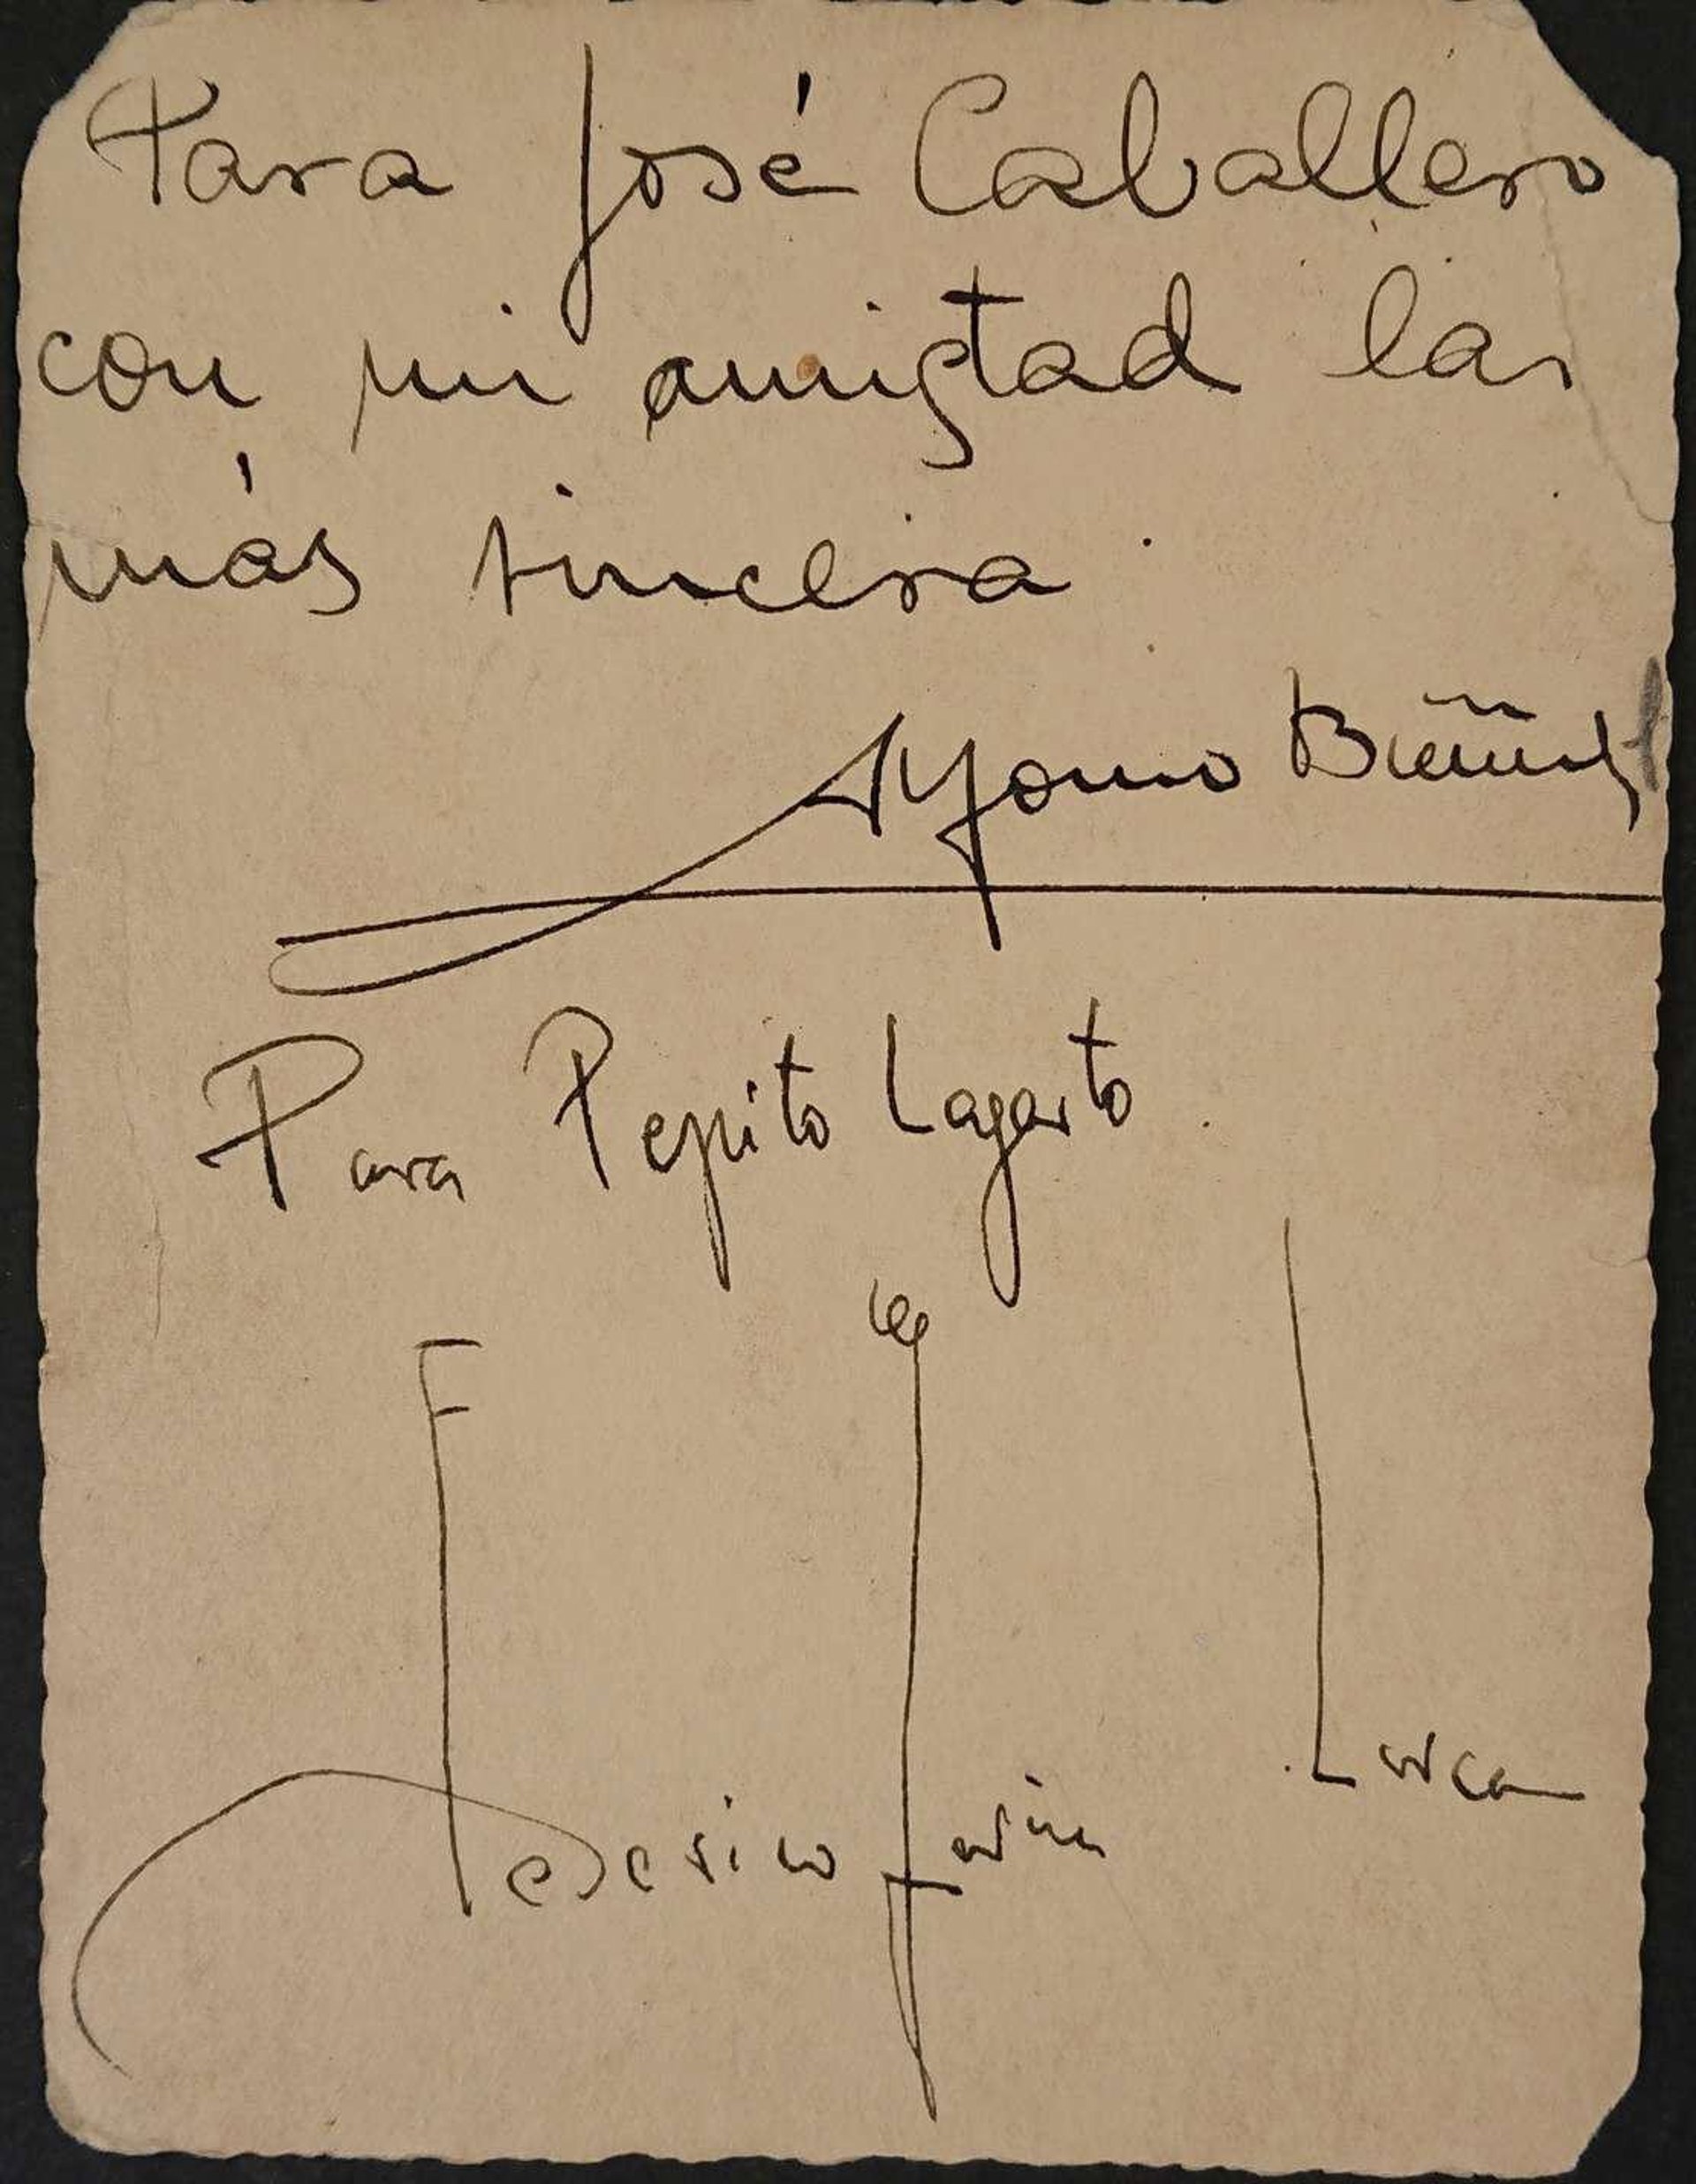 Para José Caballero
con mi amistad la
más sincera.
Alfonso Buñuel
Para Pepito Lagarto.
Federico García Lorca